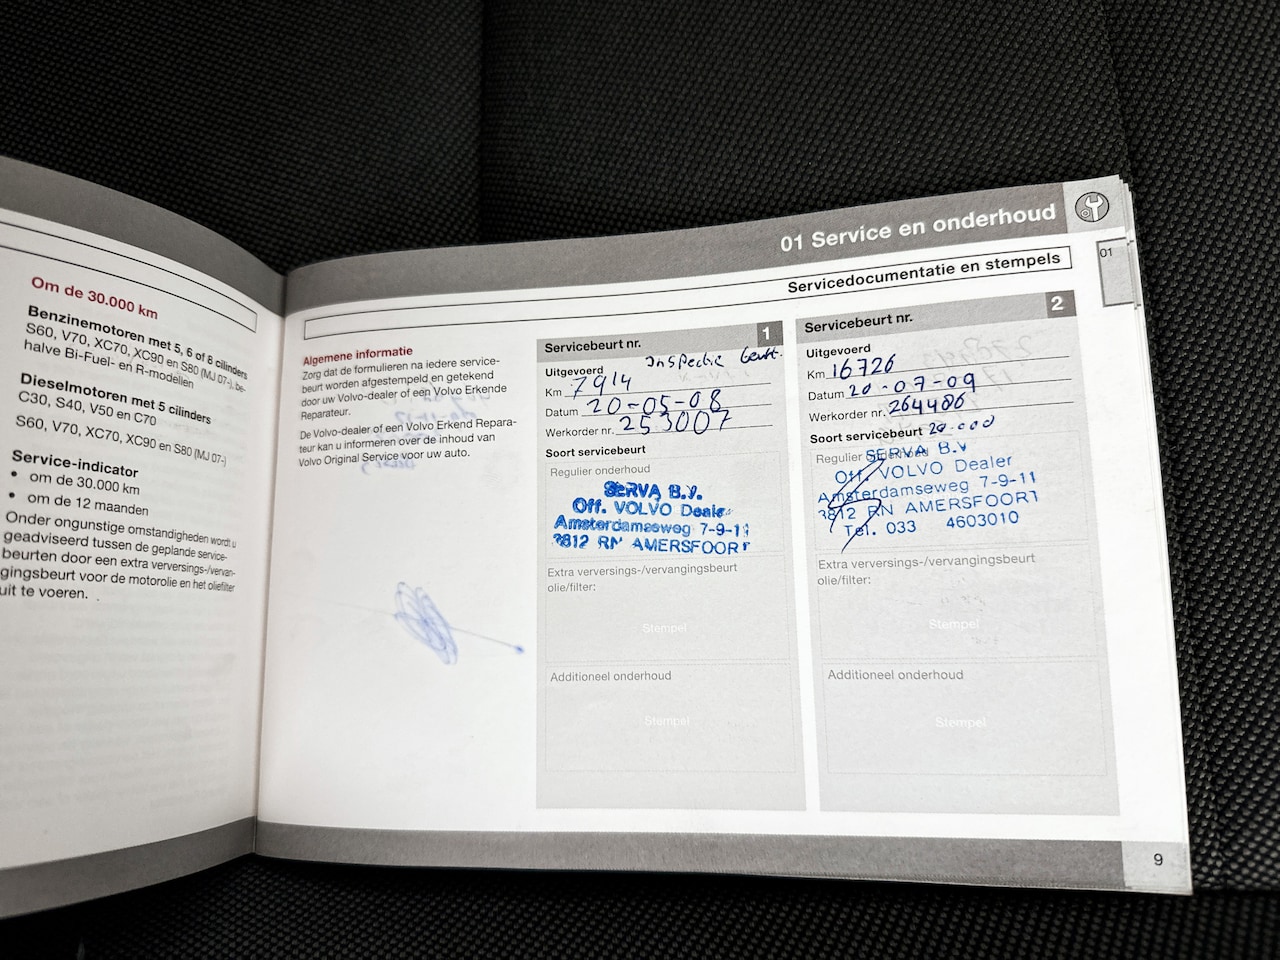 Om de 30.000 km
Benzinemotoren met 5, 6 of 8 cilinders
S60, V70, XC70, XC90 en S80 (MJ 07-), be-
halve Bi-Fuel- en R-modellen
Dieselmotoren met 5 cilinders
C30, S40, V50 en C70
S60, V70, XC70, XC90 en S80 (MJ 07-)
Service-indicator
• om de 30.000 km
• om de 12 maanden
Onder ongunstige omstandigheden wordt u
geadviseerd tussen de geplande service-
beurten door een extra verversings-/vervan-
gingsbeurt voor de motorolie en het oliefilter
uit te voeren.
01 Service en onderhoud
Servicedocumentatie en stempels
01
Algemene informatie
Zorg dat de formulieren na iedere service-
beurt worden afgestempeld en getekend
door uw Volvo-dealer of een Volvo Erkende
Reparateur.
De Volvo-dealer of een Volvo Erkend Repara-
teur kan u informeren over de inhoud van
Volvo Original Service voor uw auto.
Servicebeurt nr. 1
Inspectie beurt.
Uitgevoerd
Km 7914
Datum 20-05-08
Werkorder nr. 253007
Soort servicebeurt
Regulier onderhoud
SERVA B.V.
Off. VOLVO Dealer
Amsterdamseweg 7-9-11
3812 RN AMERSFOORT
Extra verversings-/vervangingsbeurt
olie/filter:
Stempel
Additioneel onderhoud
Stempel
Servicebeurt nr. 2
Uitgevoerd
Km 16726
Datum 20-07-09
Werkorder nr. 264486
Soort servicebeurt 20.000
Regulier onderhoud
SERVA B.V
Off. VOLVO Dealer
Amsterdamseweg 7-9-11
3812 RN AMERSFOORT
Tel. 033 4603010
Extra verversings-/vervangingsbeurt
olie/filter:
Stempel
Additioneel onderhoud
Stempel
9